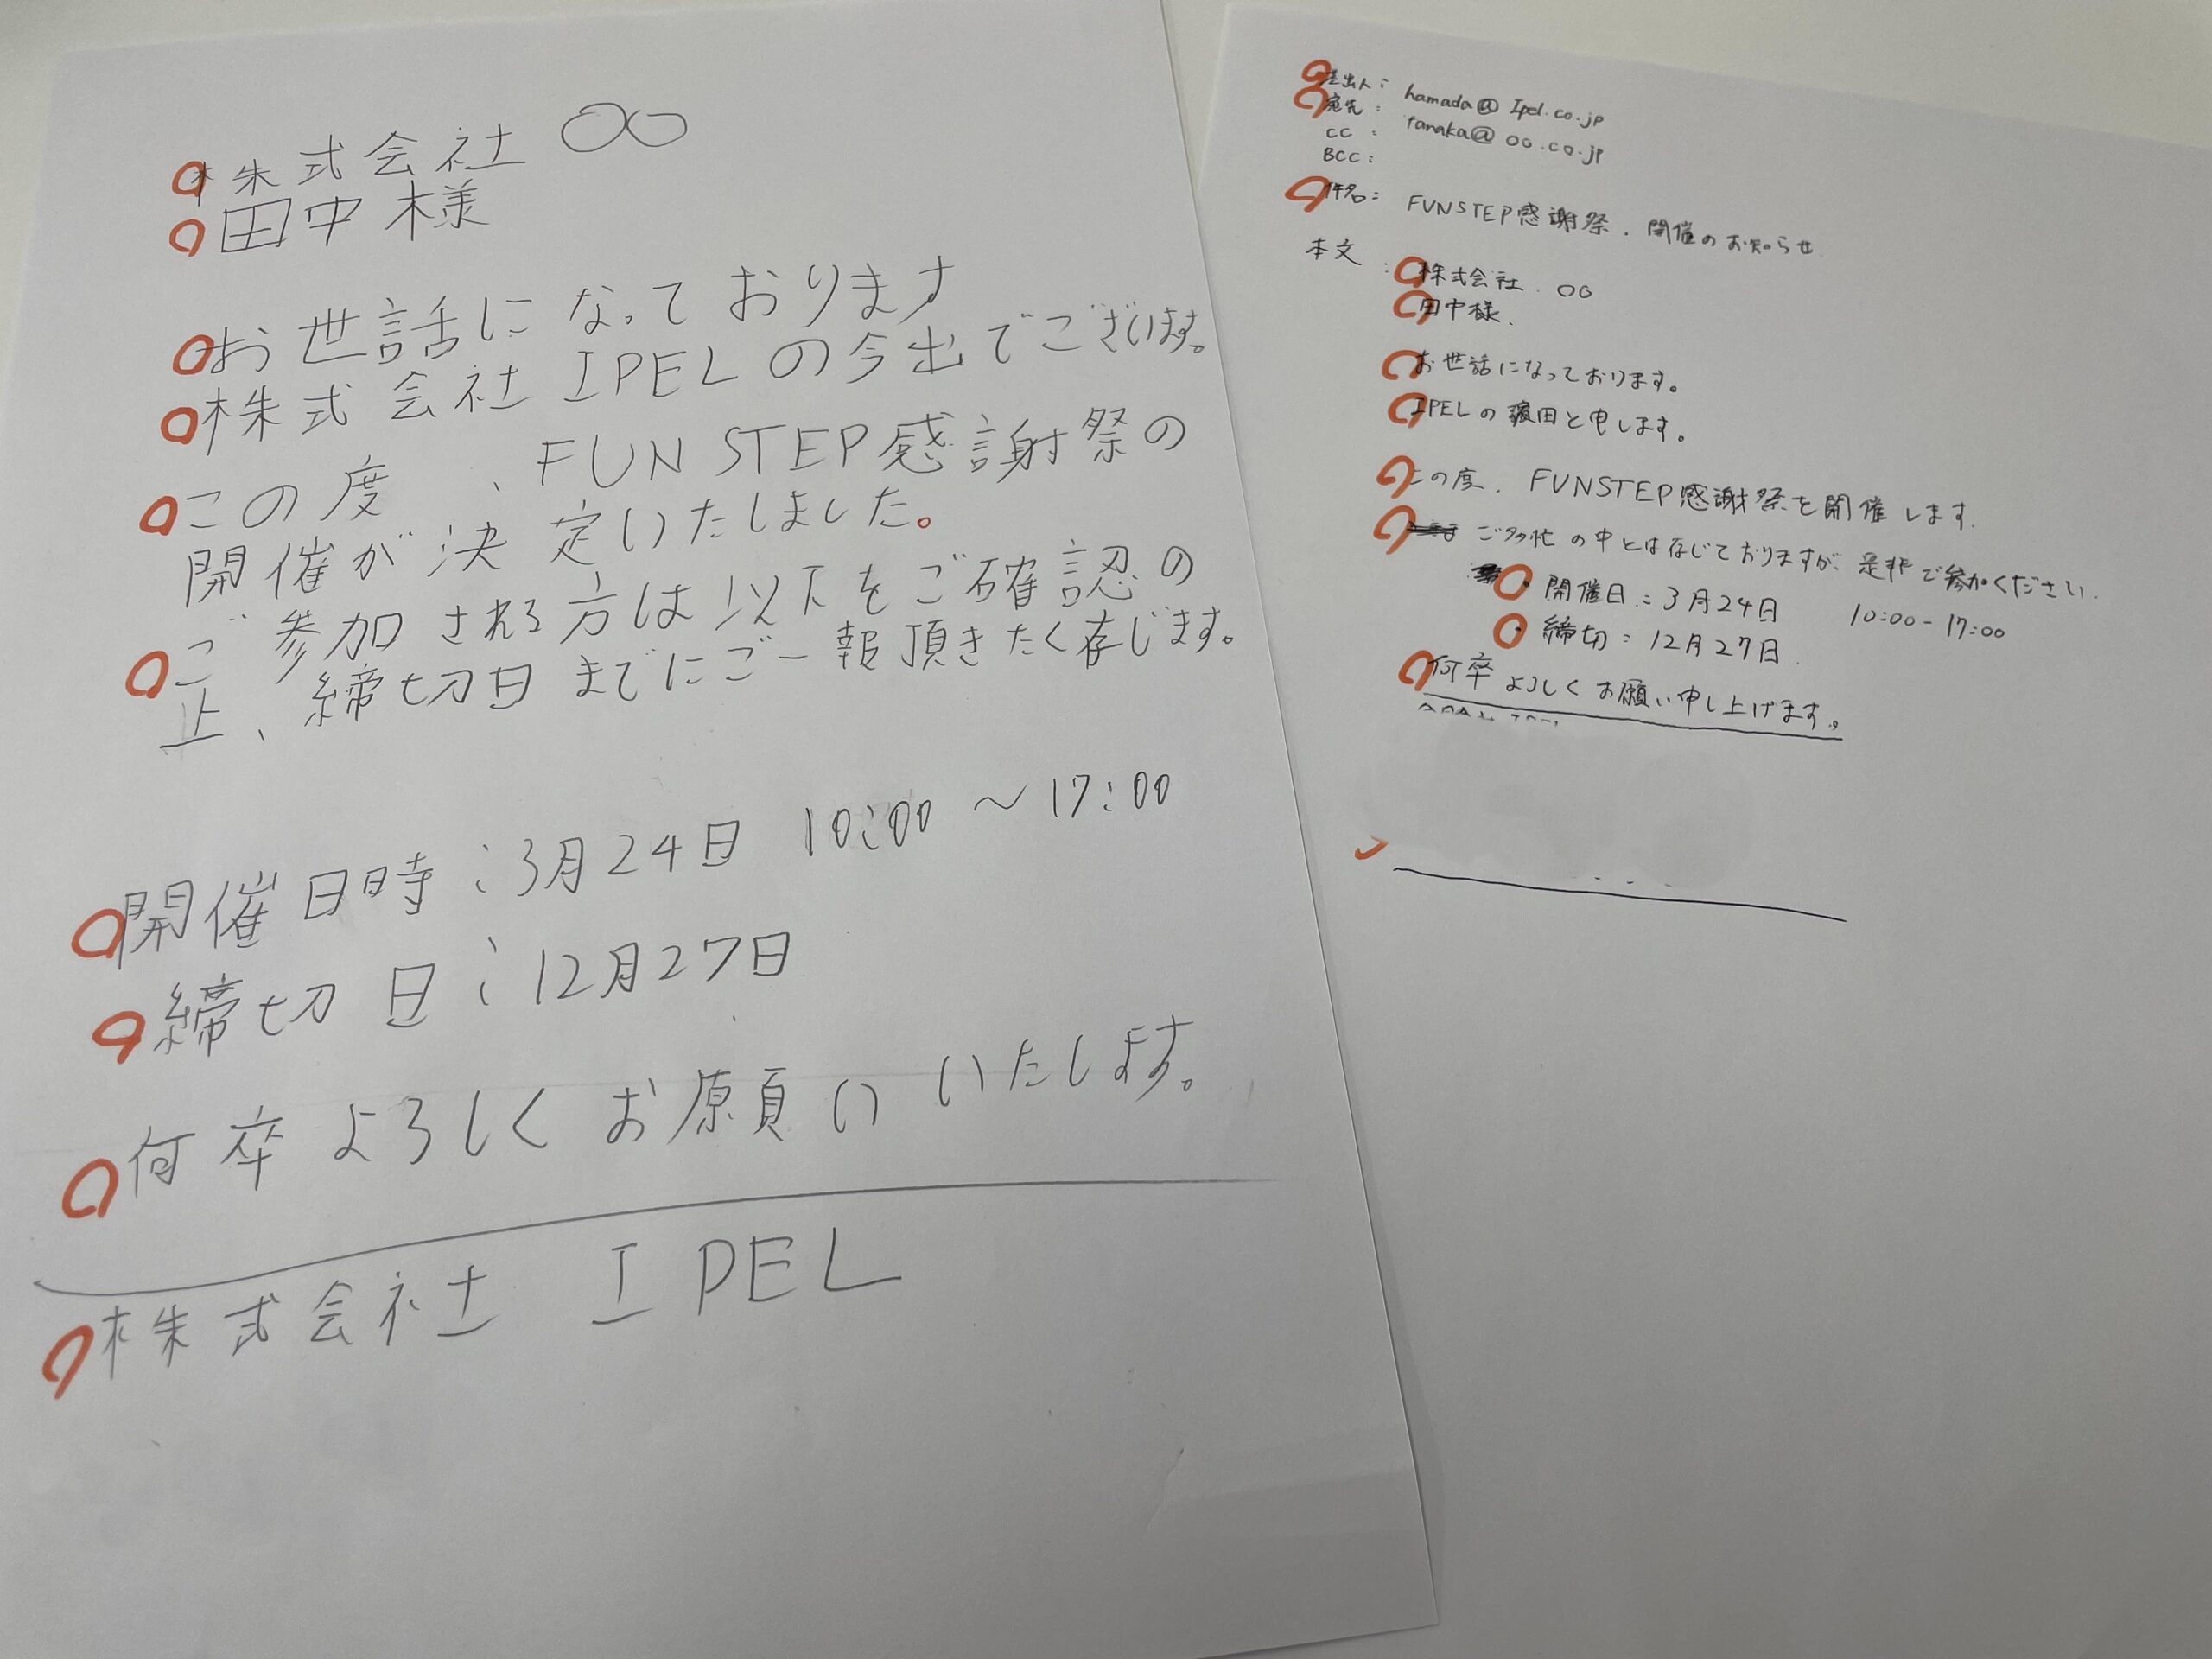 株式会社 〇〇
田中様
お世話になっております
株式会社IPELの今出でございます。
この度、FUN STEP感謝祭の
開催が決定いたしました。
ご参加される方は以下をご確認の
上、締切日までにご一報頂きたく存じます。
開催日時:3月24日 10:00〜17:00
締切日:12月27日
何卒よろしくお願いいたします。
株式会社 IPEL
差出人: hamada@Ipel.co.jp
宛先: tanaka@〇〇.co.jp
CC:
BCC:
件名: FUNSTEP感謝祭、開催のお知らせ
本文:
株式会社 〇〇
田中様、
お世話になっております。
IPELの濵田と申します。
この度、FUNSTEP感謝祭を開催します。
ご多忙の中とは存じておりますが、是非ご参加ください。
・開催日:3月24日 10:00-17:00
・締切:12月27日
何卒よろしくお願い申し上げます。